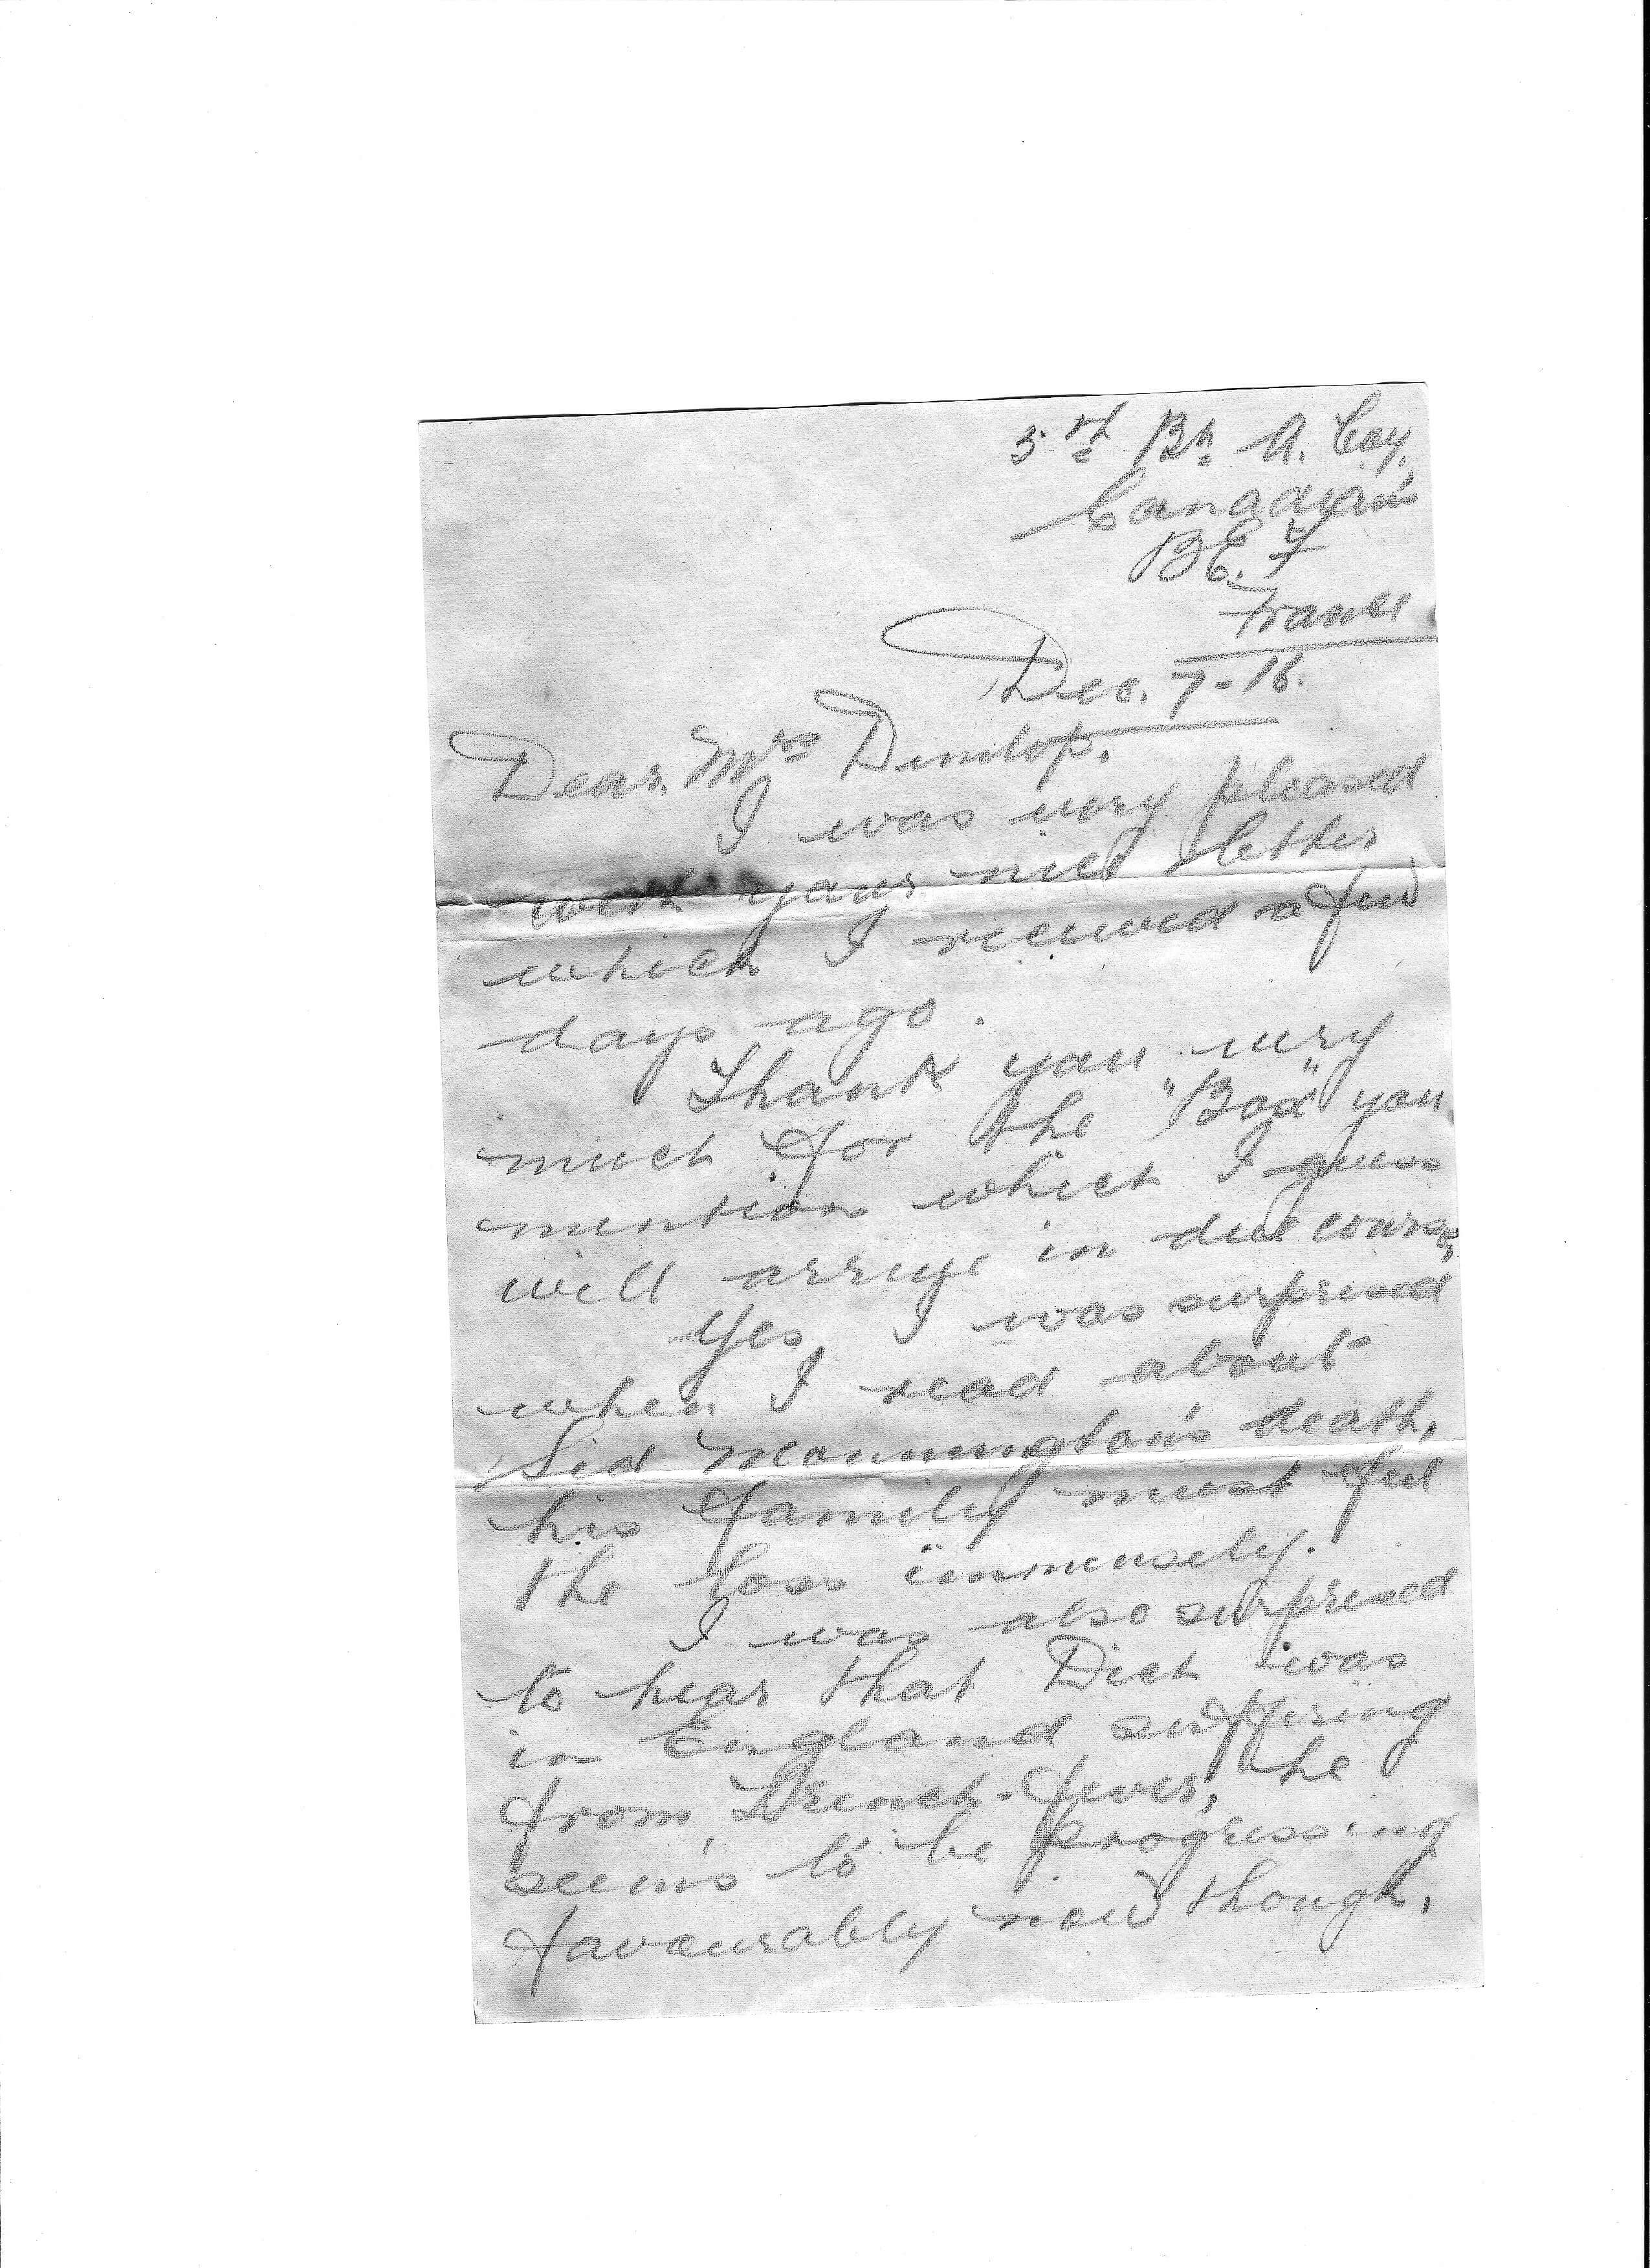 3rd Bn A. Coy.
Canadians
B.E.F
France
Dec. 7-18.
Dear Mrs Dunlop.
I was very pleased
with your nice letter
which I received a few
days ago.
Thank you very
much for the "Box" you
mention which I guess
will arrive in due course,
Yes, I was surprised
when I read about
Sid Mannington's death,
his family must feel
the loss immensely.
I was also surprised
to hear that Dick was
in England suffering
from Trench-fever, he
seems to be progressing
favourably now though,